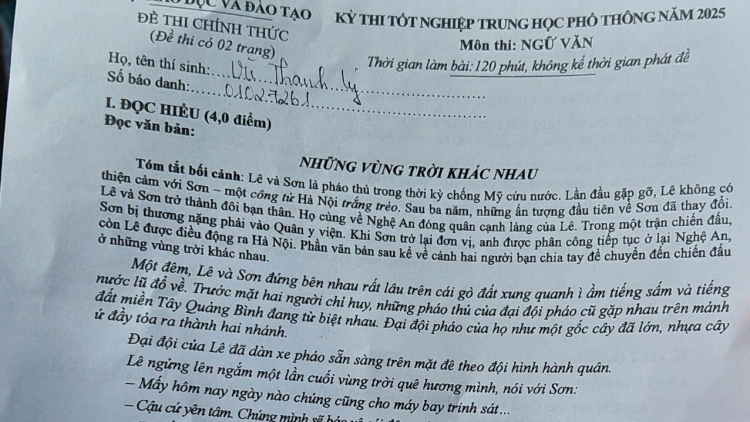 DỤC VÀ ĐÀO TẠO
ĐỀ THI CHÍNH THỨC
(Đề thi có 02 trang)
KỲ THI TỐT NGHIỆP TRUNG HỌC PHỔ THÔNG NĂM 2025
Môn thi: NGỮ VĂN
Thời gian làm bài: 120 phút, không kể thời gian phát đề
Họ, tên thí sinh: Vũ Thanh Lý
Số báo danh: 01027261
I. ĐỌC HIỂU (4,0 điểm)
Đọc văn bản:
NHỮNG VÙNG TRỜI KHÁC NHAU
Tóm tắt bối cảnh: Lê và Sơn là pháo thủ trong thời kỳ chống Mỹ cứu nước. Lần đầu gặp gỡ, Lê không có
thiện cảm với Sơn – một công tử Hà Nội trắng trẻo. Sau ba năm, những ấn tượng đầu tiên về Sơn đã thay đổi.
Lê và Sơn trở thành đôi bạn thân. Họ cùng về Nghệ An đóng quân cạnh làng của Lê. Trong một trận chiến đấu,
Sơn bị thương nặng phải vào Quân y viện. Khi Sơn trở lại đơn vị, anh được phân công tiếp tục ở lại Nghệ An,
còn Lê được điều động ra Hà Nội. Phần văn bản sau kể về cảnh hai người bạn chia tay để chuyển đến chiến đấu
ở những vùng trời khác nhau.
Một đêm, Lê và Sơn đứng bên nhau rất lâu trên cái gò đất xung quanh ì ầm tiếng sấm và tiếng
nước lũ đổ về. Trước mặt hai người chỉ huy, những pháo thủ của đại đội pháo cũ gặp nhau trên mảnh
đất miền Tây Quảng Bình đang từ biệt nhau. Đại đội pháo của họ như một gốc cây đã lớn, nhựa cây
ứ đầy tỏa ra thành hai nhánh.
Đại đội của Lê đã dàn xe pháo sẵn sàng trên mặt đê theo đội hình hành quân.
Lê ngửng lên ngắm một lần cuối vùng trời quê hương mình, nói với Sơn:
– Mấy hôm nay ngày nào chúng cũng cho máy bay trinh sát...
– Cậu cứ yên tâm. Chúng mình sẽ bảo vệ